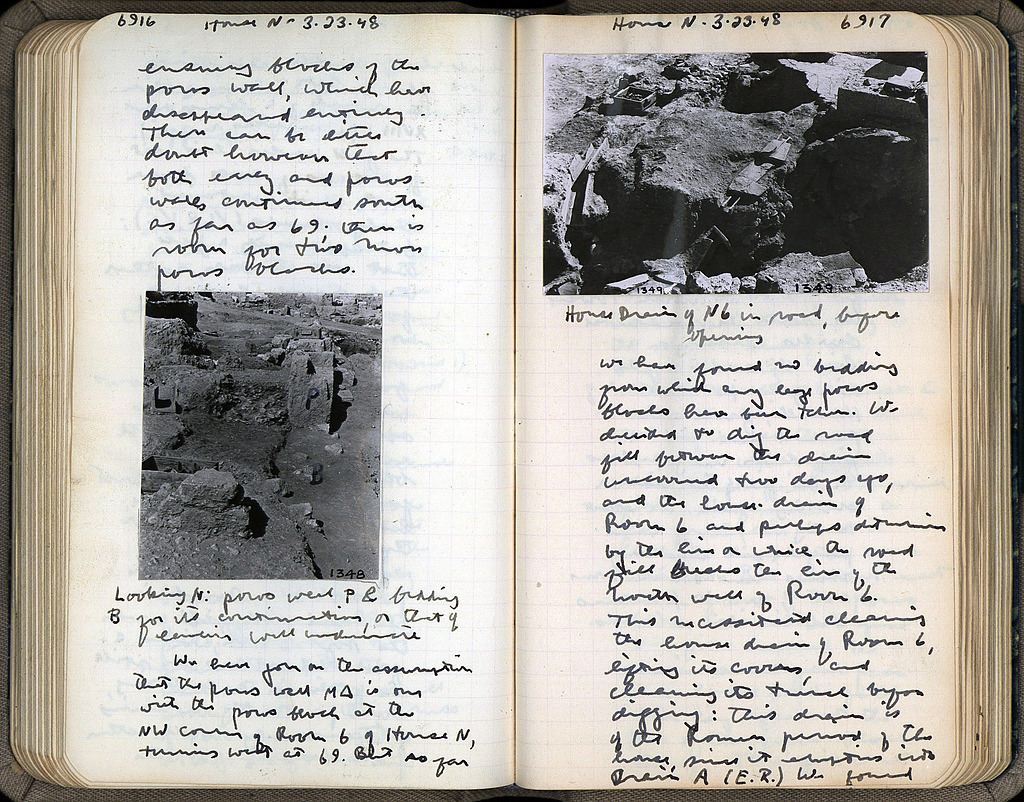 6916 House N - 3-23-48
ensuing blocks of the
poros wall, which have
disappeared entirely.
There can be little
doubt however that
both early and poros
walls continued south
as far as 69. There is
room for two more
poros blocks.
1348
Looking N: poros wall P & bedding
B for its continuation, or that of
earlier wall underneath
We have gone on the assumption
that the poros wall MΔ is one
with the poros block at the
NW corner of Room 6 of House N,
turning west at 69. But so far
House N - 3-23-48 6917
1349 1349
House Drain of N6 in road, before
opening
we have found no bedding
from which any large poros
blocks have been taken. We
decided to dig the road
fill between the drain
uncovered two days ago,
and the house drain of
Room 6 and perhaps determine
by the line on which the road
fill breaks the line of the
north wall of Room 6.
This necessitated cleaning
the house drain of Room 6,
lifting its covers, and
cleaning its trench before
digging: This drain is
of the Roman period of the
house, since it empties into
Drain A (E.R.) We found